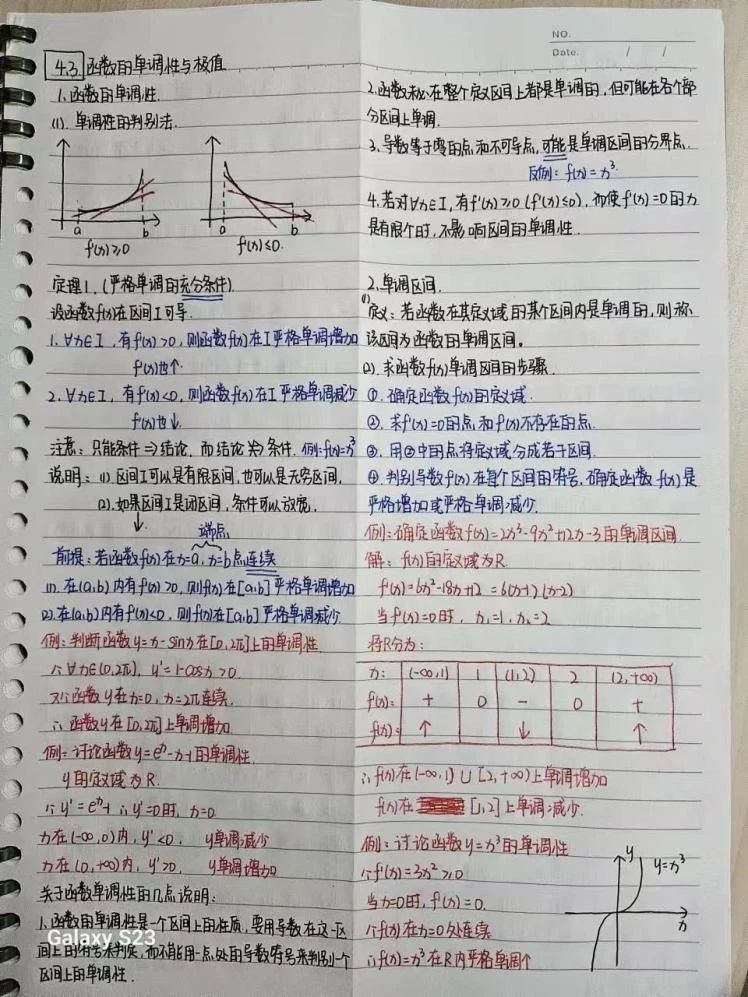 NO.
Date. / /
4.3 函数的单调性与极值
1.函数的单调性.
(1). 单调性的判别法.
a b
f'(x)≥0
a b
f'(x)≤0.
定理1. (严格单调的充分条件).
设函数f(x)在区间I可导.
1. ∀x∈I, 有f'(x)>0, 则函数f(x)在I严格单调增加
f(x)也↑.
2. ∀x∈I, 有f'(x)<0, 则函数f(x)在I严格单调减少
f(x)也↓.
注意: 只能条件⇒结论, 而结论⇏条件. 例: f(x)=x³
说明: (1). 区间I可以是有限区间, 也可以是无穷区间.
(2). 如果区间I是闭区间, 条件可以放宽.
端点
前提: 若函数f(x)在x=a, x=b点连续
(1). 在(a,b)内有f'(x)>0, 则f(x)在[a,b]严格单调增加
(2). 在(a,b)内有f'(x)<0, 则f(x)在[a,b]严格单调减少.
例: 判断函数y=x-sinx在[0,2π]上的单调性.
∵∀x∈(0,2π), y'=1-cosx>0.
又∵函数y在x=0, x=2π连续.
∴函数y在[0,2π]上单调增加
例: 讨论函数y=eˣ-x-1的单调性.
y的定义域为R.
∵y'=eˣ-1 ∴y'=0时, x=0.
x在(-∞,0)内, y'<0. y单调减少
x在(0,+∞)内, y'>0. y单调增加
关于函数单调性的几点说明:
1.函数的单调性是一个区间上的性质, 要用导数在这一区
间上的符号来判定, 而不能用一点处的导数符号来判别一个
区间上的单调性.
Galaxy S23
2.函数在整个定义区间上都是单调的, 但可能在各个部
分区间上单调.
3. 导数等于零的点和不可导点, 可能是单调区间的分界点.
反例: f(x)=x³.
4. 若对∀x∈I, 有f'(x)≥0 (f'(x)≤0), 而使f'(x)=0的x
是有限个时, 不影响区间的单调性.
2.单调区间.
(1)定义: 若函数在其定义域的某个区间内是单调的, 则称
该区间为函数的单调区间。
(2). 求函数f(x)单调区间的步骤.
①. 确定函数f(x)的定义域.
②. 求f'(x)=0的点和f'(x)不存在的点.
③. 用②中的点将定义域分成若干区间.
④. 判别导数f'(x)在每个区间的符号, 确定函数f(x)是
严格增加或严格单调减少.
例: 确定函数f(x)=2x³-9x²+12x-3的单调区间
解: f(x)的定义域为R.
f'(x)=6x²-18x+12=6(x-1)(x-2)
当f'(x)=0时, x₁=1, x₂=2
将R分为:
x: (-∞,1) 1 (1,2) 2 (2,+∞)
f'(x): + 0 - 0 +
f(x): ↑ ↓ ↑
∴f(x)在(-∞,1)∪[2,+∞)上单调增加
f(x)在[1,2]上单调减少.
例: 讨论函数y=x³的单调性
∵f'(x)=3x²≥0
当x=0时, f'(x)=0.
∵f(x)在x=0处连续
∴f(x)=x³在R内严格单调个
y
y=x³
x